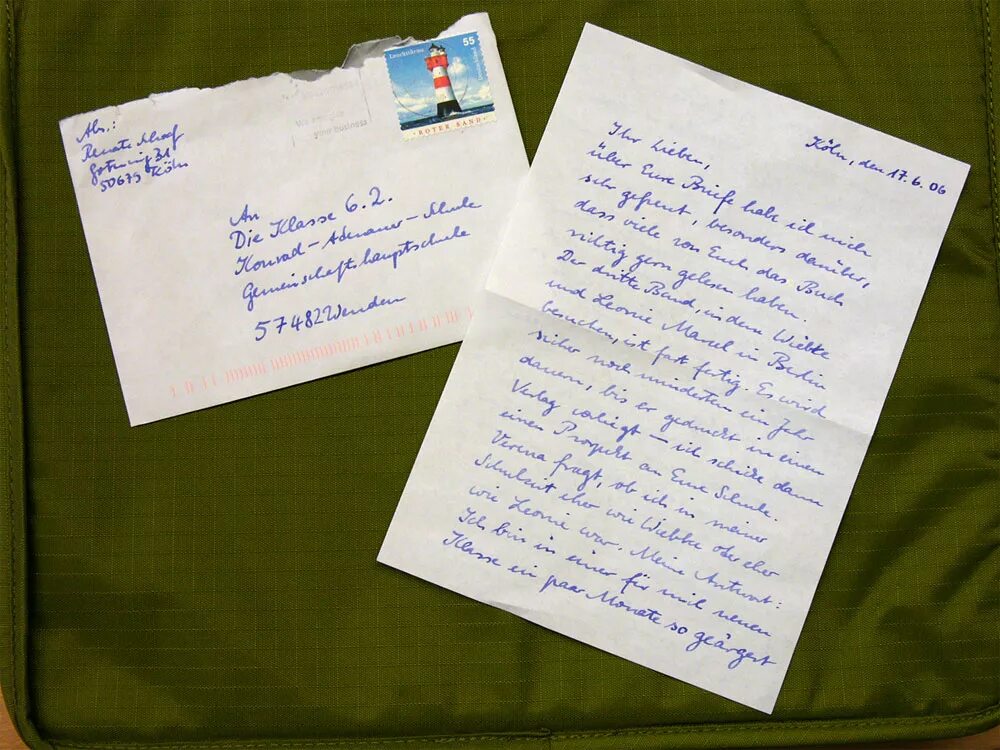 Abs.:
Renate Schoof
Gotenring 31
50679 Köln
your business
Leuchttürme
55
Deutschland
ROTER SAND
An
Die Klasse 6.2.
Konrad-Adenauer-Schule
Gemeinschaftshauptschule
57482 Wenden
Köln, den 17.6.06
Ihr Lieben,
über Eure Briefe habe ich mich
sehr gefreut, besonders darüber,
dass viele von Euch das Buch
richtig gern gelesen haben.
Der dritte Band, in dem Wiebke
und Leonie Marcel in Berlin
besuchen, ist fast fertig. Es wird
sicher noch mindesten ein Jahr
dauern, bis er gedruckt in einem
Verlag vorliegt – ich schicke dann
einen Prospekt an Eure Schule.
Verena fragt, ob ich in meiner
Schulzeit eher wie Wiebke oder eher
wie Leonie war. Meine Antwort:
Ich bin in einer für mich neuen
Klasse ein paar Monate so geärgert